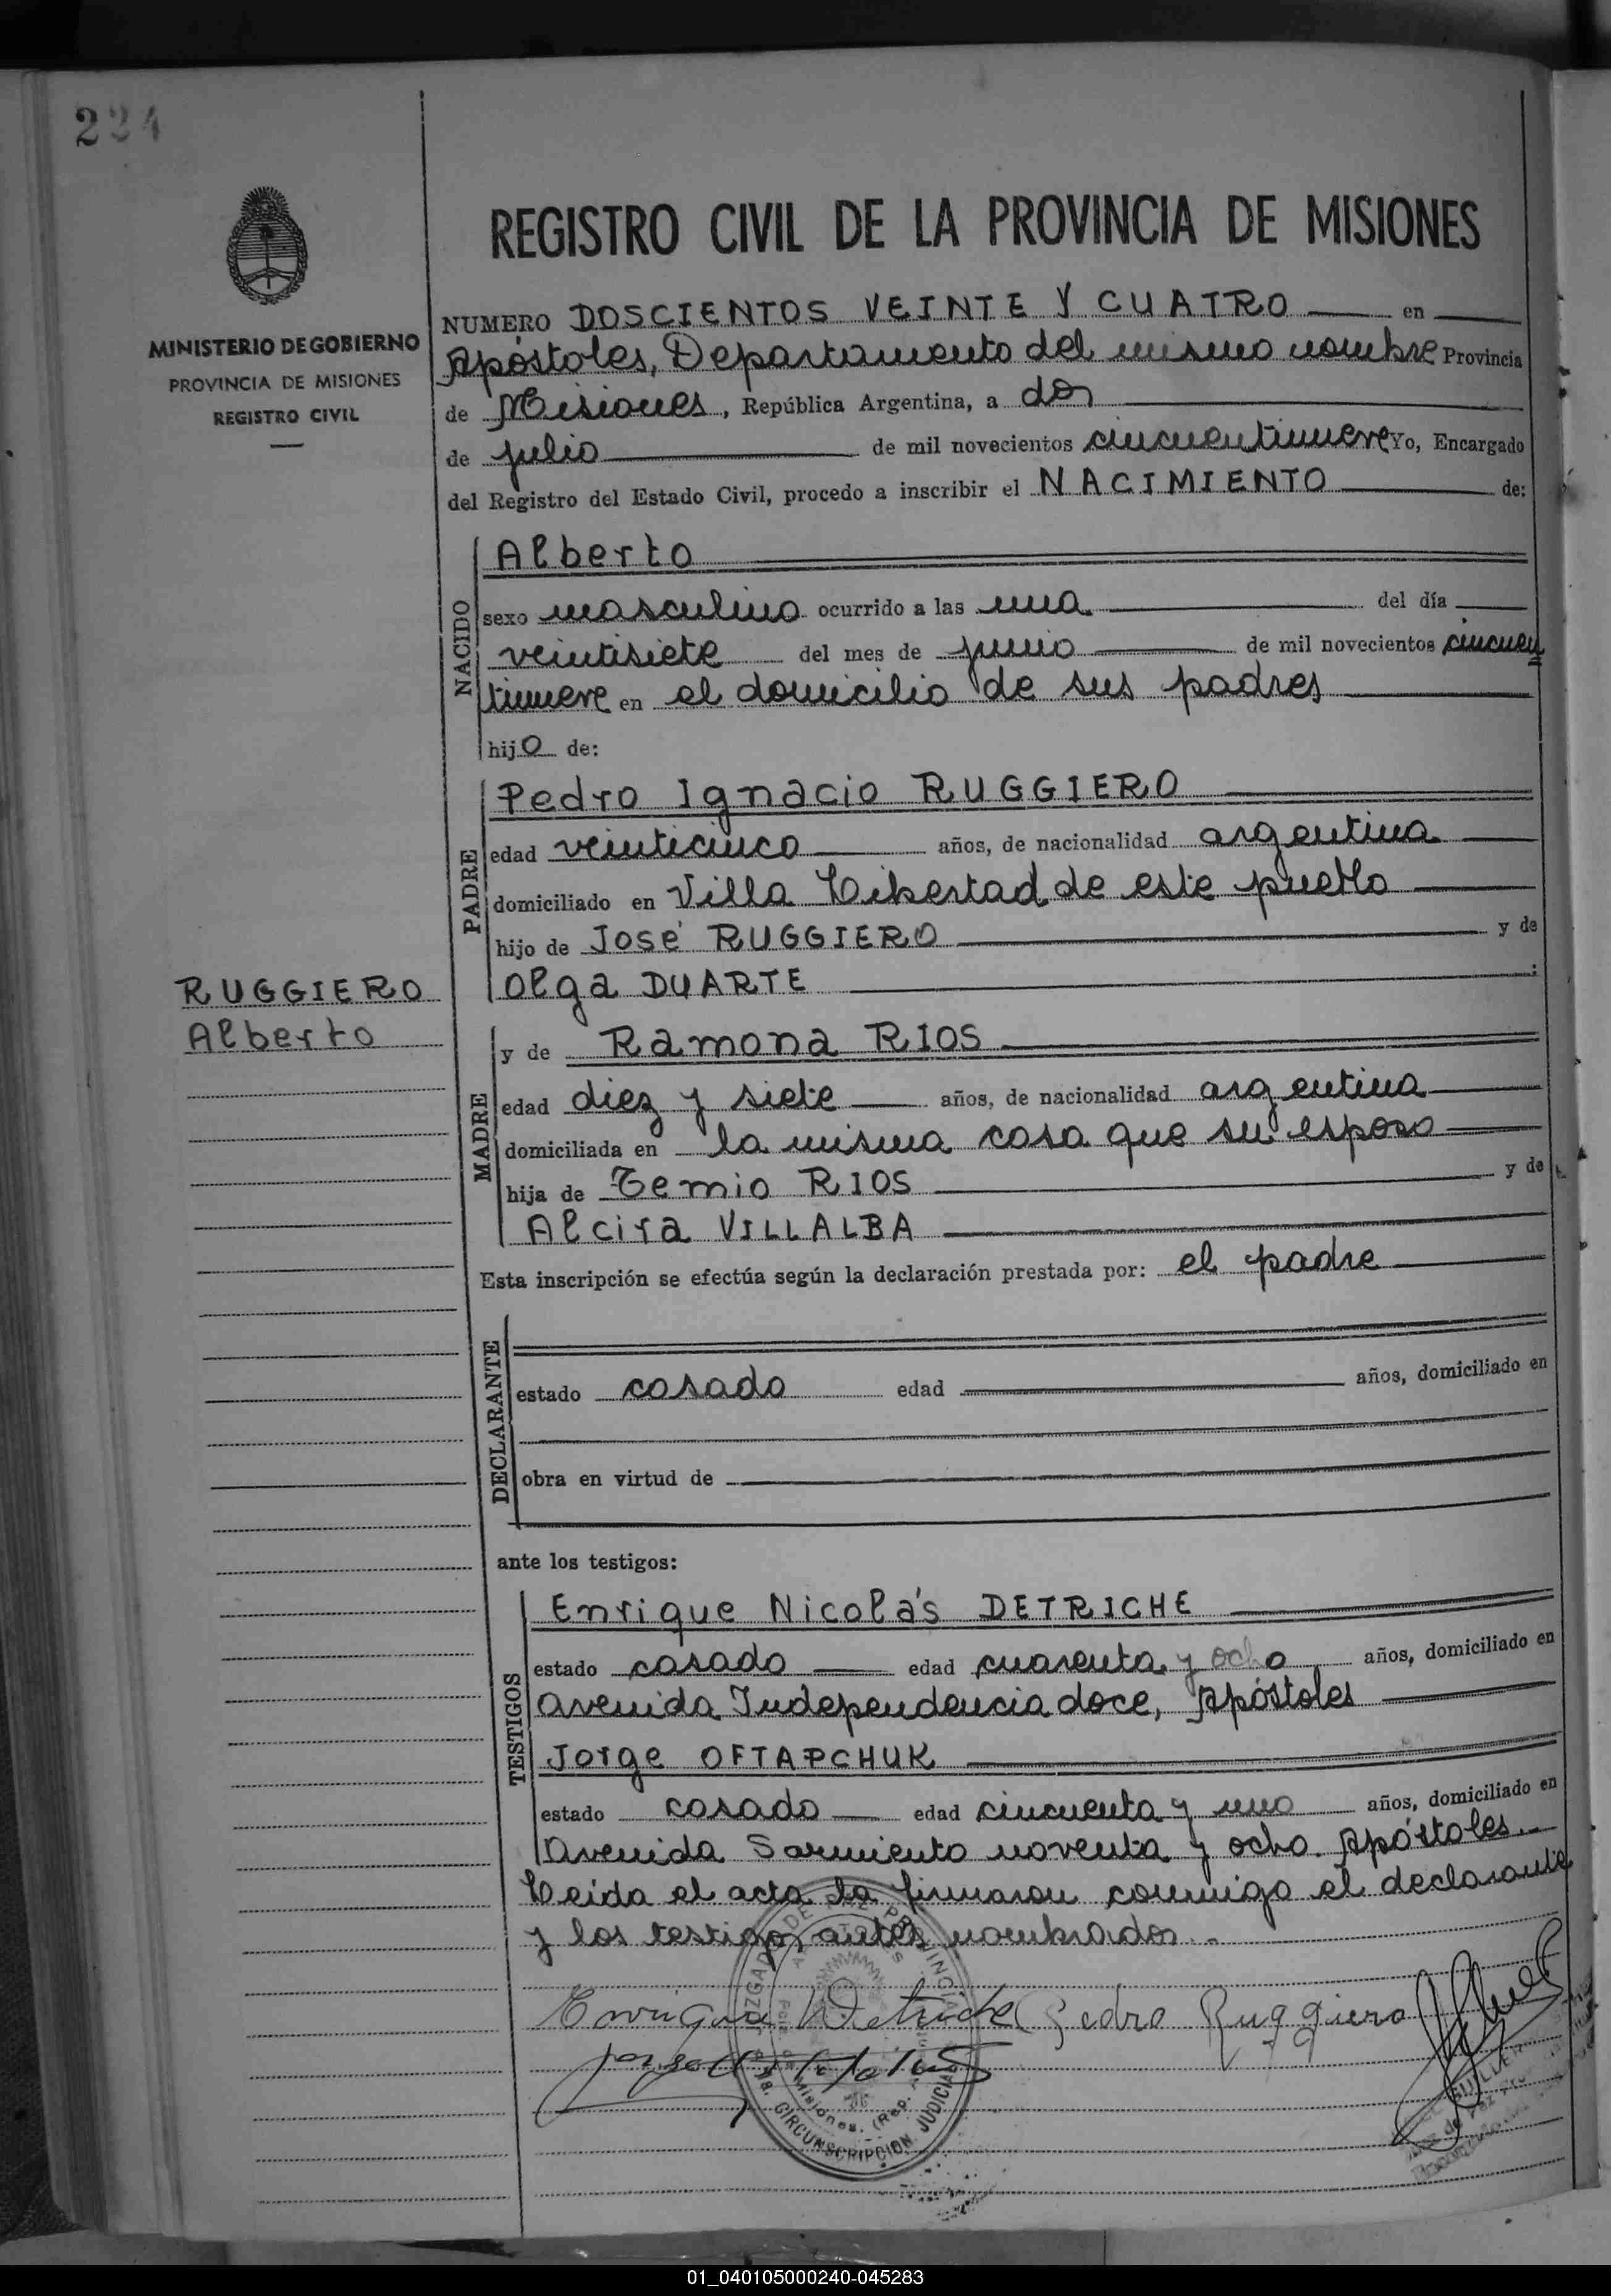 224
MINISTERIO DE GOBIERNO
PROVINCIA DE MISIONES
REGISTRO CIVIL
REGISTRO CIVIL DE LA PROVINCIA DE MISIONES
NUMERO DOSCIENTOS VEINTE Y CUATRO en
Apóstoles, Departamento del mismo nombre Provincia
de Misiones, República Argentina, a dos
de julio de mil novecientos cincuentinueve Yo, Encargado
del Registro del Estado Civil, procedo a inscribir el NACIMIENTO de:
NACIDO
Alberto
sexo masculino ocurrido a las una del día
veintisiete del mes de junio de mil novecientos cincuen
tinueve en el domicilio de sus padres
hijo de:
PADRE
Pedro Ignacio RUGGIERO
edad veinticinco años, de nacionalidad argentina
domiciliado en Villa Libertad de este pueblo
hijo de José RUGGIERO y de
Olga DUARTE :
RUGGIERO
Alberto
MADRE
y de Ramona RIOS
edad diez y siete años, de nacionalidad argentina
domiciliada en la misma casa que su esposo
hija de Temio RIOS y de
Alcira VILLALBA
Esta inscripción se efectúa según la declaración prestada por: el padre
DECLARANTE
estado casado edad años, domiciliado en
obra en virtud de
ante los testigos:
TESTIGOS
Enrique Nicolás DETRICHE
estado casado edad cuarenta y ocho años, domiciliado en
Avenida Independencia doce, Apóstoles
Jorge OFTAPCHUK
estado casado edad cincuenta y uno años, domiciliado en
Avenida Sarmiento noventa y ocho. Apóstoles.-
Leída el acta la firmaron conmigo el declarante
y los testigos antes nombrados.-
Detriche Pedro Ruggiero
CIRCUNSCRIPCION JUDICIAL
Misiones. (Rep.
01_040105000240-045283